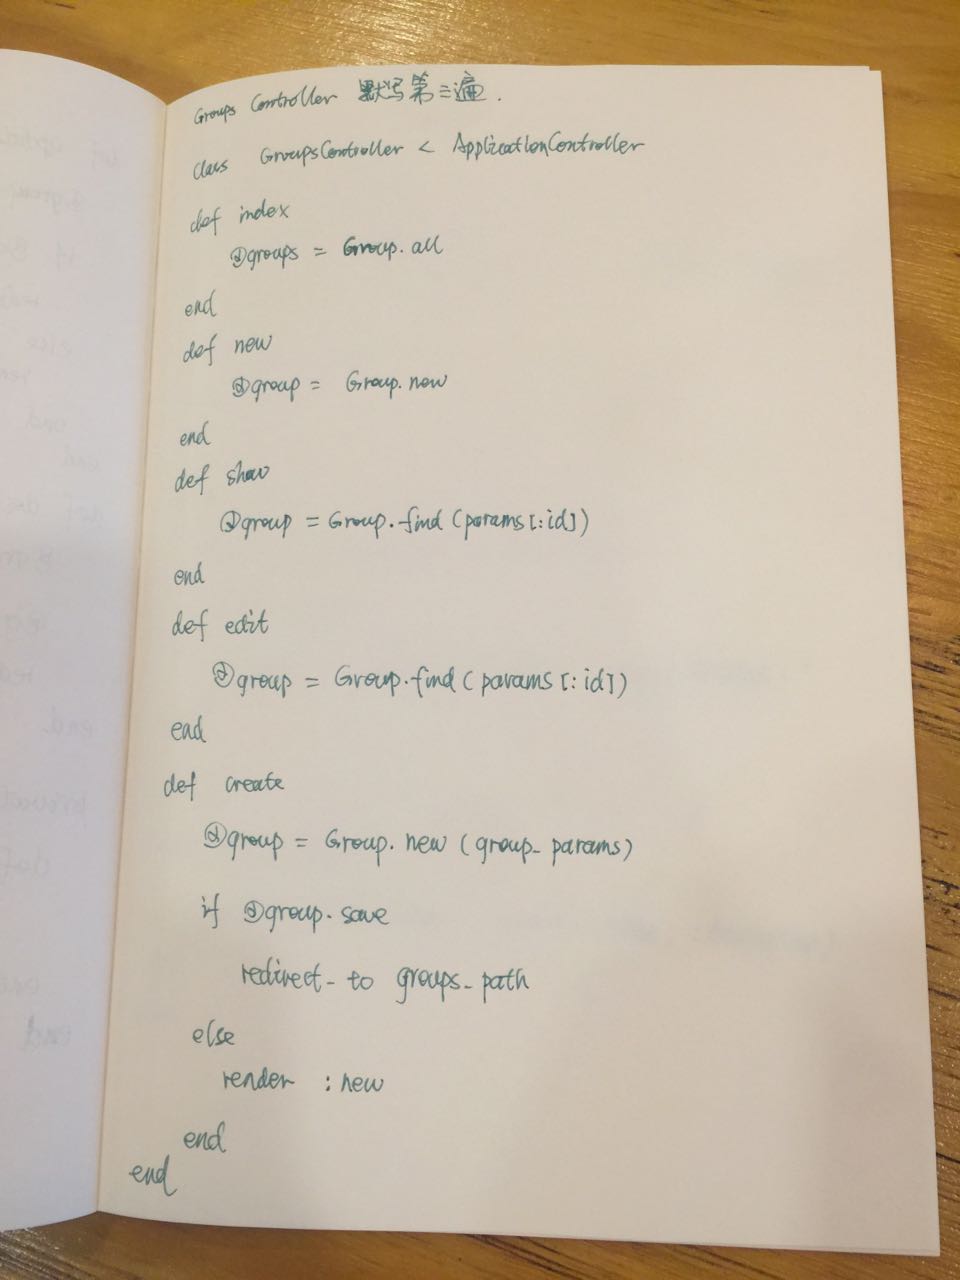 Groups Controller 默写第三遍.
class GroupsController < ApplicationController
def index
@groups = Group.all
end
def new
@group = Group.new
end
def show
@group = Group.find (params[:id])
end
def edit
@group = Group.find (params[:id])
end
def create
@group = Group.new (group_params)
if @group.save
redirect_to groups_path
else
render :new
end
end